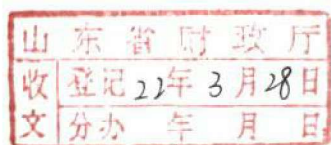 山东省财政厅
收文
登记 22年 3月28日
分办 年 月 日